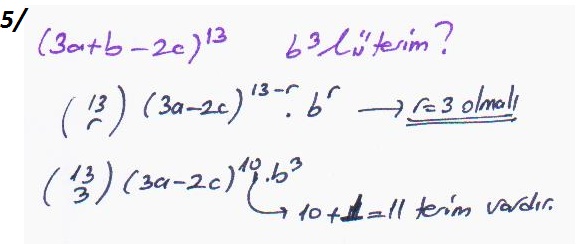 5/
(3a+b-2c)¹³ b³ lü terim?
(13 r) (3a-2c)¹³⁻ʳ. bʳ → r=3 olmalı
(13 3) (3a-2c)¹⁰. b³
→ 10+1=11 terim vardır.